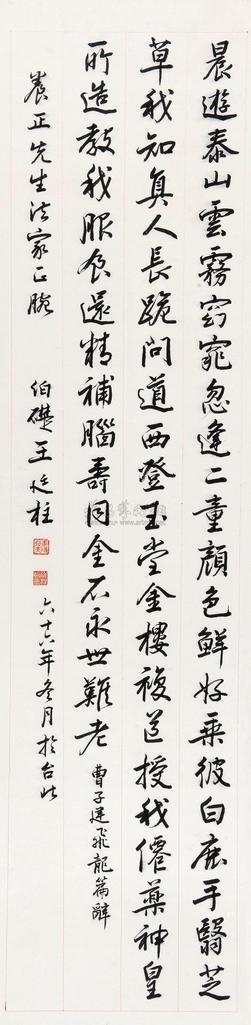 晨遊泰山雲霧窈窕忽逢二童顏色鮮好乘彼白鹿手翳芝
草我知真人長跪問道西登玉堂金樓複道授我僊藥神皇
所造教我服食還精補腦壽同金石永世難老 曹子建飛龍篇辭
養正先生法家正腕 伯礎王廷柱
六十六年冬月於台北